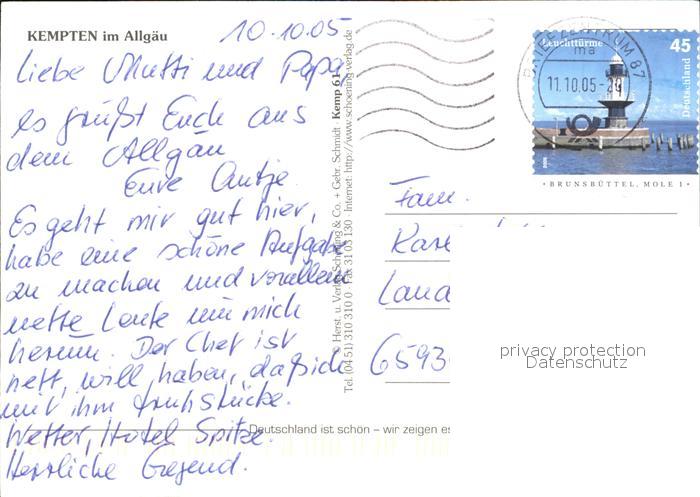 KEMPTEN im Allgäu
10.10.05
Liebe Mutti und Papa
es grüßt Euch aus
dem Allgäu
Eure Antje
Es geht mir gut hier,
habe eine schöne Aufgabe
zu machen und vorallem
nette Leute um mich
herum. Der Chef ist
nett, will haben, daß ich
mit ihm frühstücke.
Wetter, Hotel Spitze.
Herrliche Gegend.
Deutschland ist schön – wir zeigen es
© Herst. u. Verlag Schöning & Co. + Gebr. Schmidt · Kemp 61
Tel. (04 51) 310 310 0 Fax 31 03 130 Internet: http://www.schoening-verlag.de
Leuchttürme
45
Deutschland
BRIEFZENTRUM 87
ma
11.10.05-20
· BRUNSBÜTTEL, MOLE 1 ·
Fam.
Kare
Land
6593
privacy protection
Datenschutz